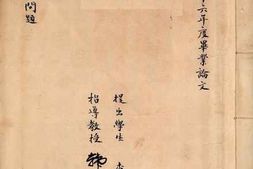 六年度畢業論文
提出學生
指導教授
問題